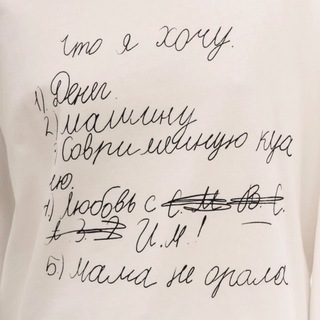 что я хочу.
1) Денег.
2) машину
3) Соври менную куа
ю.
4) Любовь с С. М. В. С.
А З. И. м!
5) мама не орала